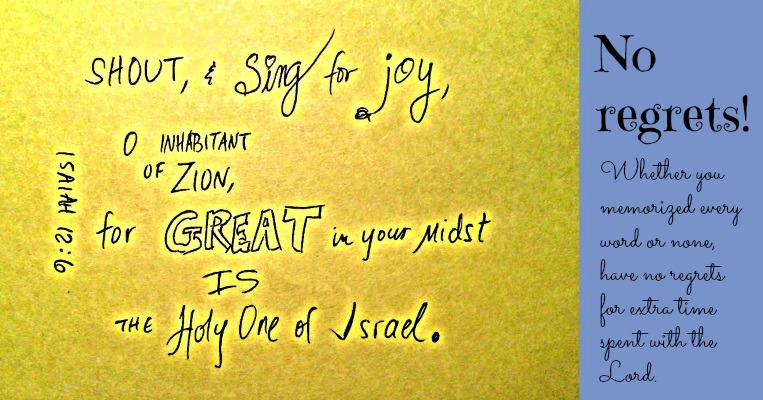 SHOUT, & Sing for joy,
O INHABITANT
OF ZION,
for GREAT in your Midst
IS
THE Holy One of Israel.
ISAIAH 12:6.
No
regrets!
Whether you
memorized every
word or none,
have no regrets
for extra time
spent with the
Lord.